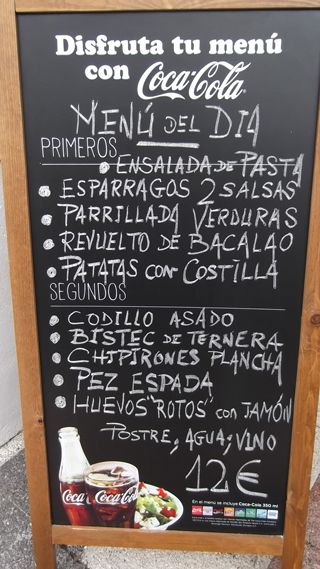 Disfruta tu menú
con Coca-Cola
MENÚ DEL DIA
PRIMEROS
ENSALADA DE PASTA
ESPARRAGOS 2 SALSAS
PARRILLADA VERDURAS
REVUELTO DE BACALAO
PATATAS CON COSTILLA
SEGUNDOS
CODILLO ASADO
BISTEC DE TERNERA
CHIPIRONES PLANCHA
PEZ ESPADA
HUEVOS "ROTOS" con JAMÓN
POSTRE, AGUA, VINO
12€
Coca-Cola
En el menú se incluye Coca-Cola 350 ml